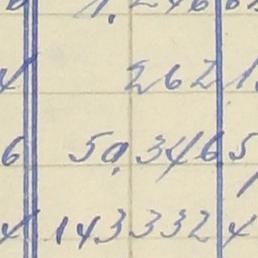 1.246
4 262 1
6 50.346 5
4 143 332 4